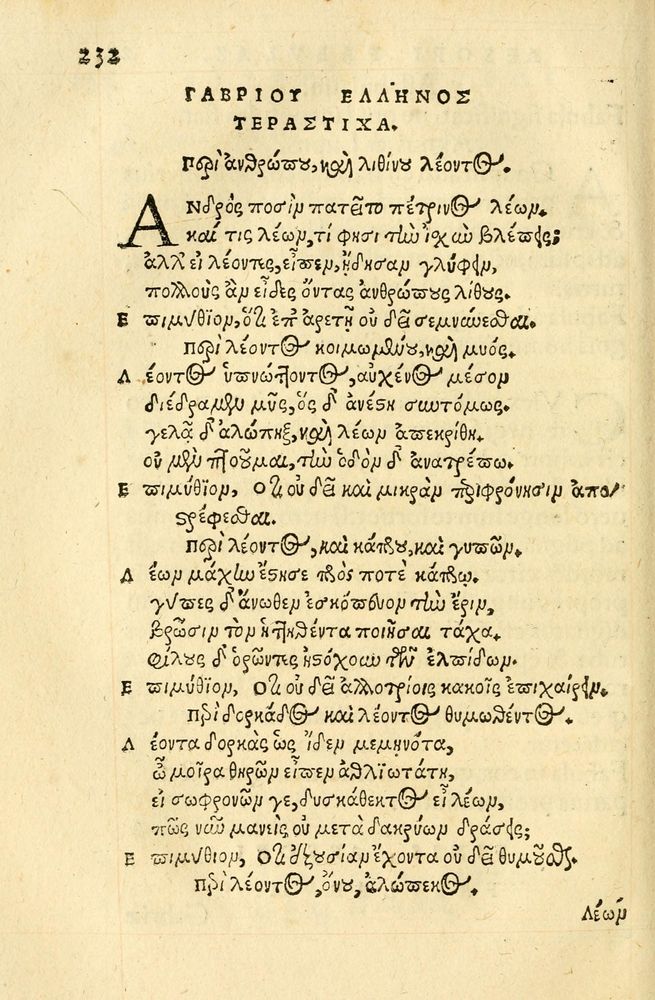 232
ΓΑΒΡΙΟΥ ΕΛΛΗΝΟΣ
ΤΕΡΑΣΤΙΧΑ.
Περὶ ἀνθρώπου, καὶ λιθίνου λέοντος.
ΑΝδρὸς ποσὶν πατεῖτο πέτρινος λέων.
καί τις λέων, τί φησι τὴν ἰσχὺν βλέπεις;
ἀλλ' εἰ λέοντες, εἶπεν, ᾔδησαν γλύφειν,
πολλοὺς ἂν εἶδες ὄντας ἀνθρώπους λίθους.
Ἐπιμύθιον, ὅτι ἐπ' ἀρετῇ οὐ δεῖ σεμνύνεσθαι.
Περὶ λέοντος κοιμωμένου, καὶ μυός.
Λέοντος ὑπνώττοντος, αὐχένος μέσον
διέδραμεν μῦς, ὃς δ' ἀνέστη συντόμως.
γελᾷ δ' ἀλώπηξ, καὶ λέων ἀπεκρίθη.
οὐ μῦν πτοοῦμαι, τὴν ὁδὸν δ' ἀνατρέπω.
Ἐπιμύθιον, Ὅτι οὐ δεῖ καὶ μικρὰν περιφρόνησιν ἀπο-
στρέφεσθαι.
Περὶ λέοντος, καὶ κάπρου, καὶ γυπῶν.
Λέων μάχην ἔστησε πρός ποτὲ κάπρῳ.
γύπες δ' ἄνωθεν ἐσκόπευον τὴν ἔριν,
βρῶσιν τὸν ἡττηθέντα ποιῆσαι τάχα.
φίλους δ' ὁρῶντες ἠστόχουν τῶν ἐλπίδων.
Ἐπιμύθιον, Ὅτι οὐ δεῖ ἀλλοτρίοις κακοῖς ἐπιχαίρειν.
Περὶ δορκάδος καὶ λέοντος θυμωθέντος.
Λέοντα δορκὰς ὡς ἴδεν μεμηνότα,
ὦ μοῖρα θηρῶν εἶπεν ἀθλιωτάτη,
εἰ σωφρονῶν γε, δυσκάθεκτος εἶ λέων,
πῶς νῦν μανεὶς οὐ μετὰ δακρύων δράσεις;
Ἐπιμύθιον, Ὅτι ἐξουσίαν ἔχοντα οὐ δεῖ θυμοῦσθαι.
Περὶ λέοντος, ὄνου, ἀλώπεκος.
Λέων